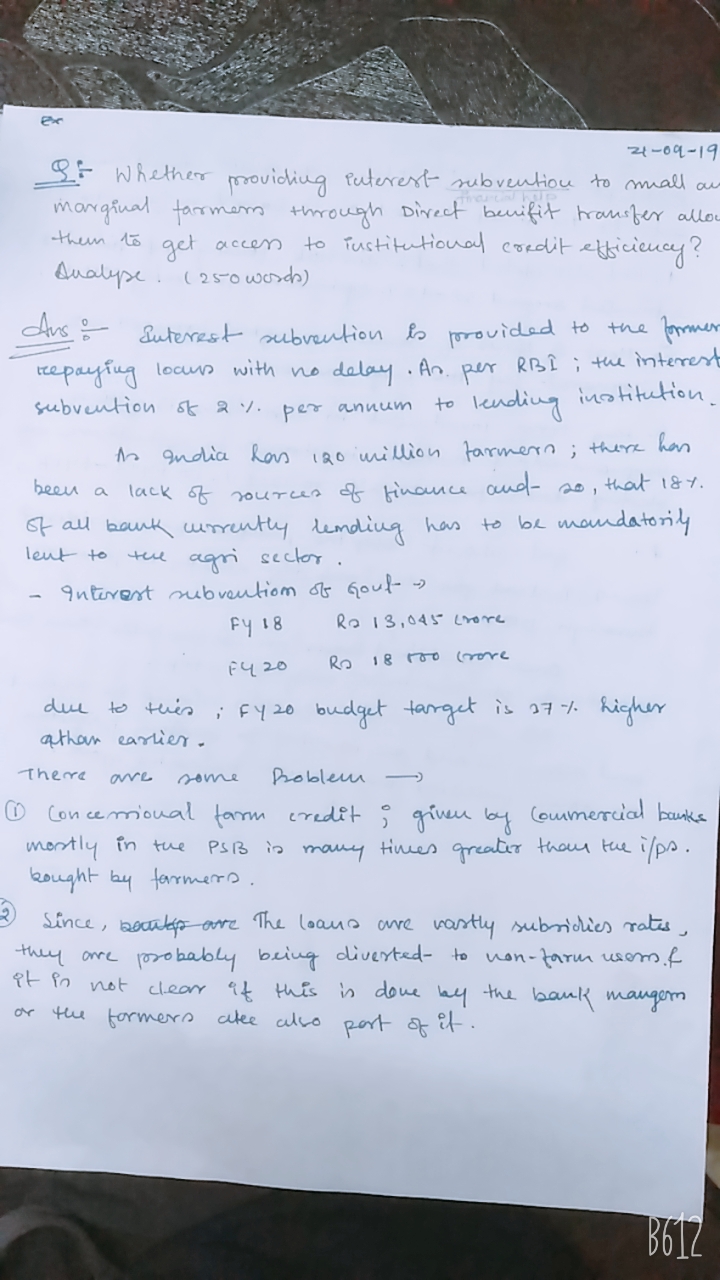 Ex
21-09-19
Q:- Whether providing interest subvention to small an
financial help
marginal farmers through Direct benifit transfer allow
them to get access to institutional credit efficiency?
Analyse. (250 words)
Ans :- Interest subvention is provided to the farmer
repaying loans with no delay. As per RBI; the interest
subvention of 2%. per annum to lending institution.
As India has 120 million farmers; there has
been a lack of sources of finance and so, that 18%.
of all bank currently lending has to be mandatorily
lent to the agri sector.
- Interest subvention of Govt →
FY 18 Rs 13,045 crore
FY 20 Rs 18 000 crore
due to this; FY 20 budget target is 37% higher
than earlier.
There are some Problem →
① Concessional farm credit; given by Commercial banks
mostly in the PSB is many times greater than the i/ps.
bought by farmers.
② Since, The loans are vastly subsidies rates,
they are probably being diverted to non-farm users &
it is not clear if this is done by the bank mangers
or the farmers are also part of it.
B612